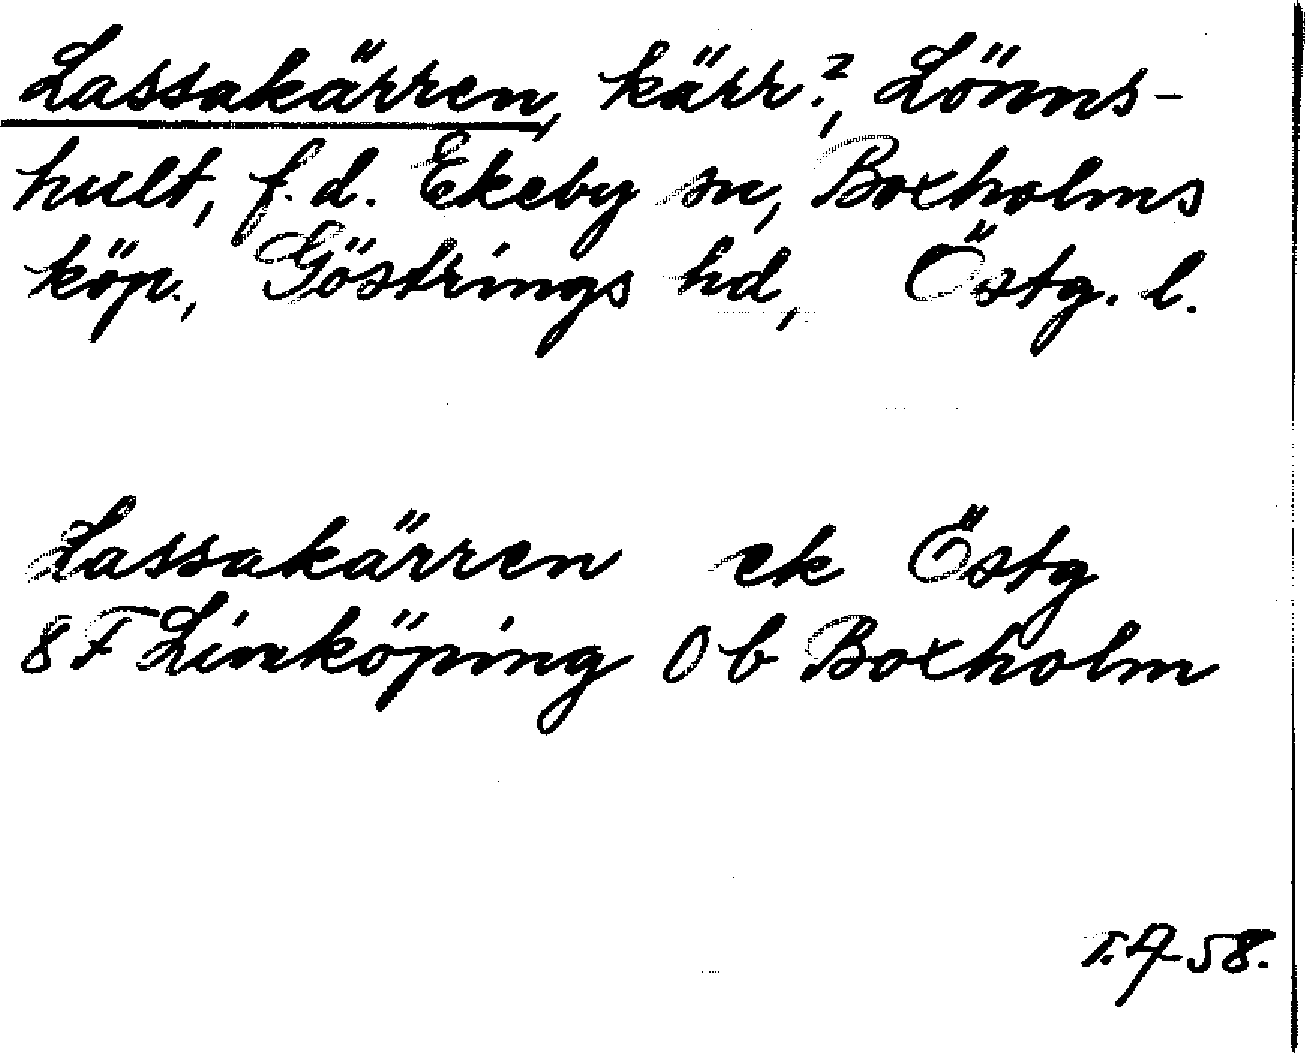 Lassakärren, kärr?, Lönns-
hult, f.d. Ekeby sn, Boxholms
köp., Göstrings hd, Östg. l.
Lassakärren ek Östg
8 F Linköping 0 b Boxholm
58.